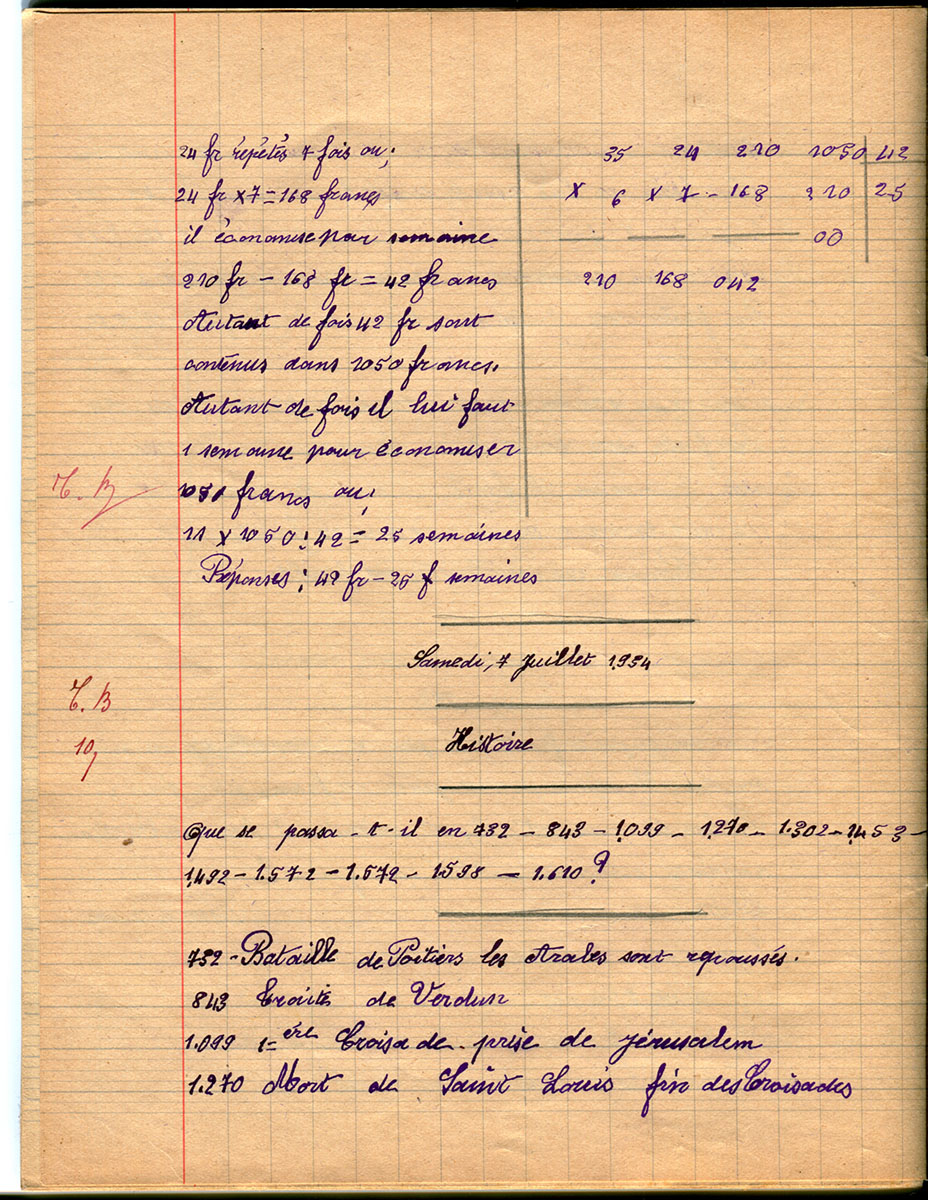 24 fr répétés 7 fois ou;
24 fr x 7 = 168 francs
il économise par semaine
210 fr - 168 fr = 42 francs
Autant de fois 42 fr sont
contenus dans 1050 francs.
Autant de fois il lui faut
1 semaine pour économiser
1050 francs ou;
11 x 1050 : 42 = 25 semaines
Réponses : 42 fr - 25 f semaines
35 24 210 1050 42
x 6 x 7 - 168 210 25
00
210 168 042
T. B
Samedi, 7 Juillet 1.954
T. B
10
Histoire
Que se passa-t-il en 732 - 843 - 1.099 - 1.270 - 1.302 - 1.453 -
1.492 - 1.572 - 1.572 - 1598 - 1.610 ?
732 - Bataille de Poitiers les Arabes sont repoussés.
843 Traité de Verdun
1.099 1ère Croisade. prise de Jérusalem
1.270 Mort de Saint Louis fin des Croisades